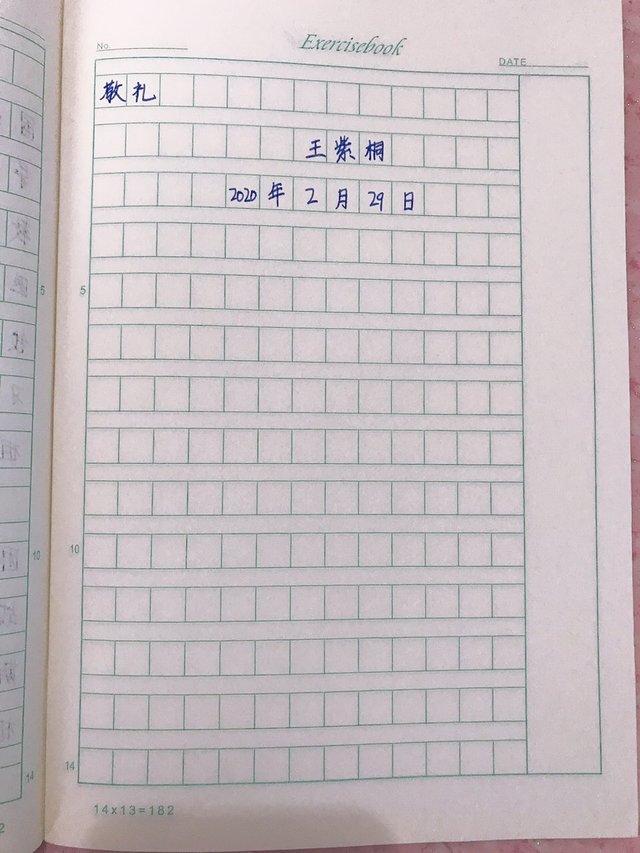 No.
Exercisebook
DATE
敬礼
王紫桐
2020年2月29日
5
5
10
10
14
14
14x13=182
2